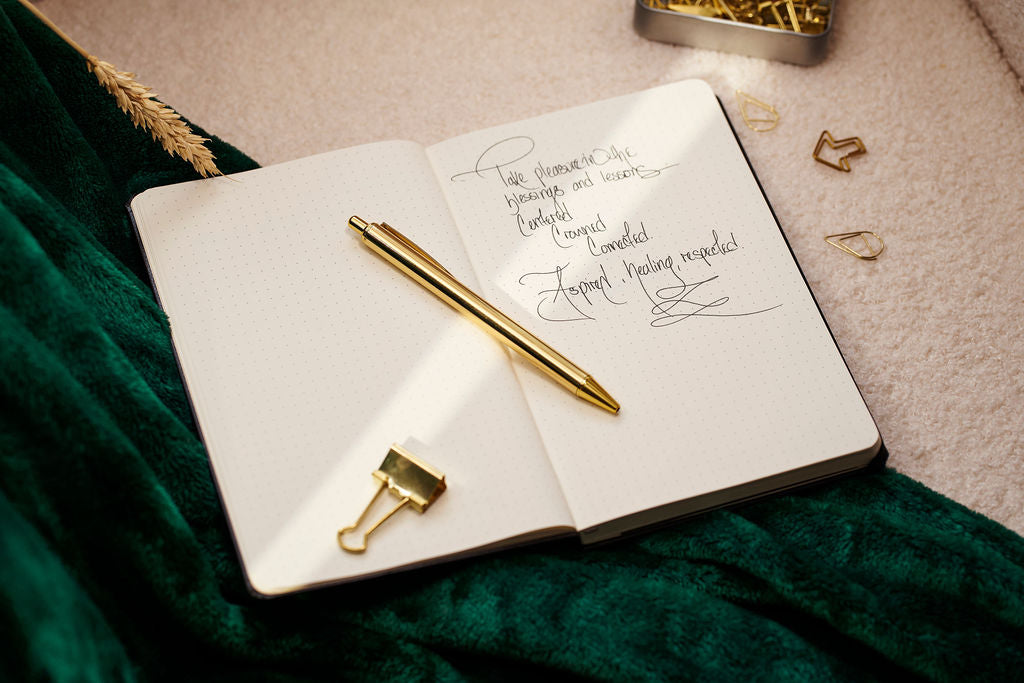 Take pleasure in the
blessings and lessons
Centered
Crowned
Connected.
Aspired, healing, respected.